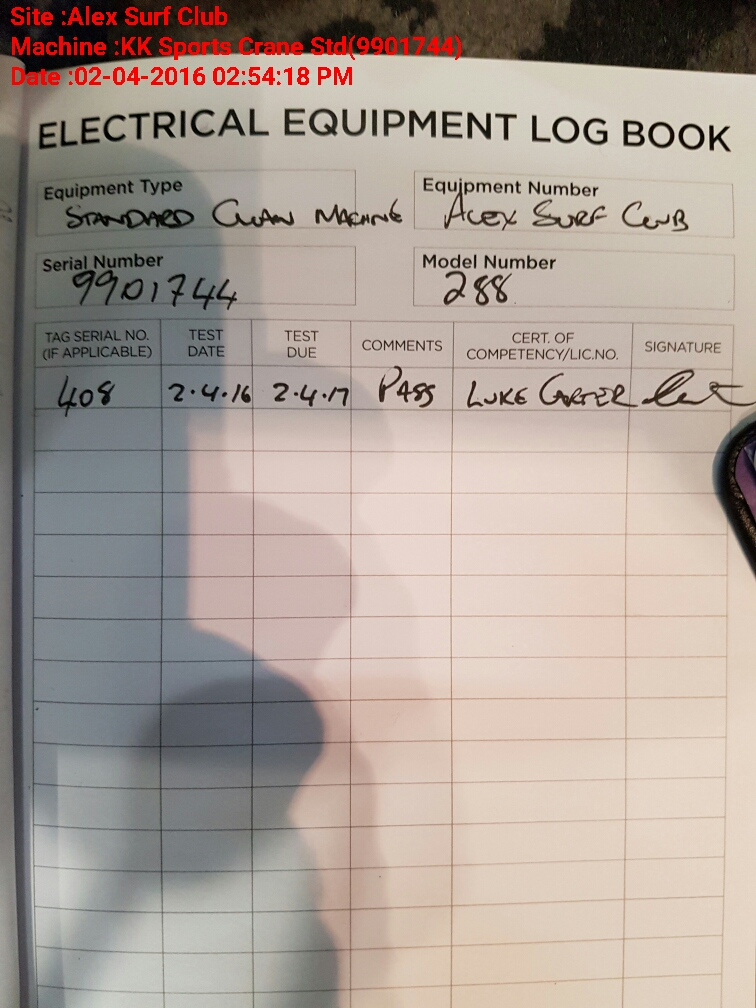 Site :Alex Surf Club
Machine :KK Sports Crane Std(9901744)
Date :02-04-2016 02:54:18 PM
ELECTRICAL EQUIPMENT LOG BOOK
Equipment Type
STANDARD MACHINE
Equipment Number
ALEX SURF CLUB
Serial Number
9901744
Model Number
288
TAG SERIAL NO. (IF APPLICABLE)
TEST DATE
TEST DUE
COMMENTS
CERT. OF COMPETENCY/LIC.NO.
SIGNATURE
408 2.4.16 2.4.17 PASS LUKE CARTER